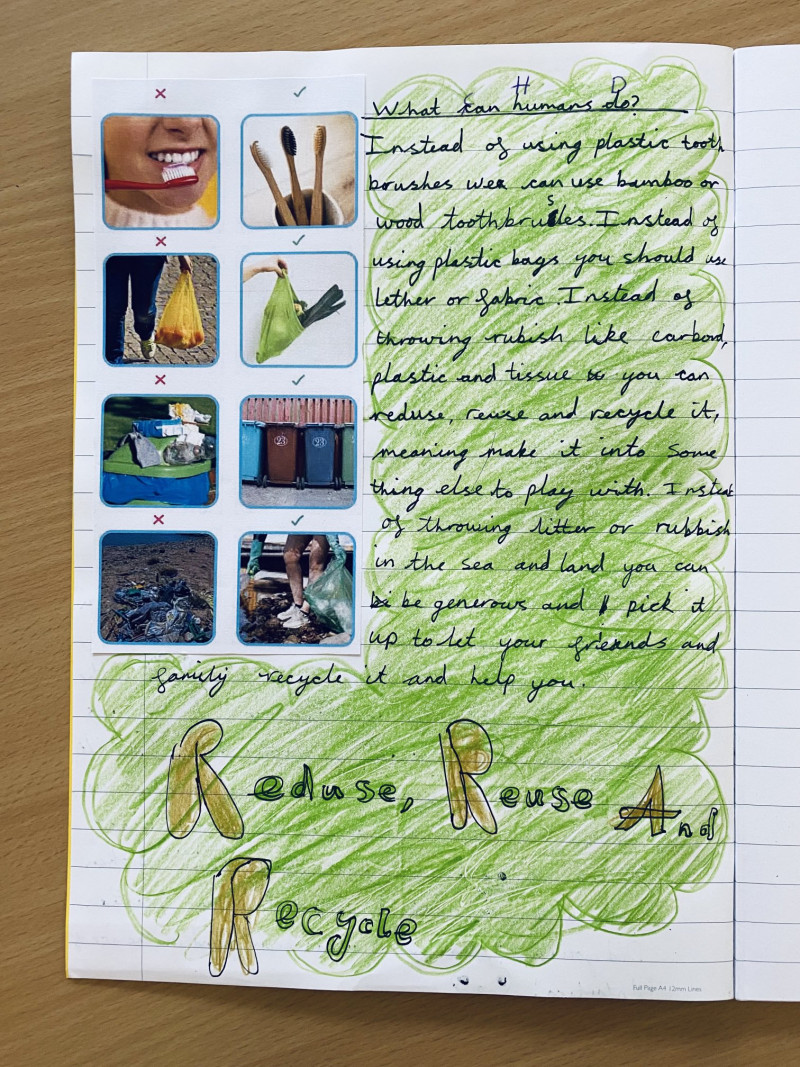 What can Humans Do?
Instead of using plastic tooth
brushes we can use bamboo or
wood toothbrusles. Instead of
using plastic bags you should use
lether or fabric. Instead of
throwing rubish like carbord,
plastic and tissue you can
reduse, reuse and recycle it,
meaning make it into some
thing else to play with. Instead
of throwing litter or rubbish
in the sea and land you can
be generows and pick it
up to let your friends and
family recycle it and help you.
23 23
Reduse, Reuse And
Recycle
Full Page A4 12mm Lines